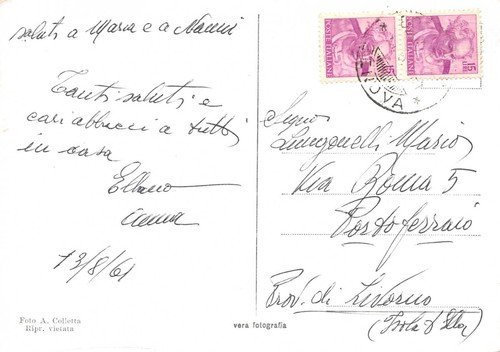 saluti a Maria e a Nanni
Tanti saluti e
cari abbracci a tutti
in casa
Anna
13/8/61
Foto A. Colletta
Ripr. vietata
vera fotografia
POSTE ITALIANE
POSTE ITALIANE
15
Mario
Via Roma 5
Portoferraio
Prov. di Livorno
(Isola d'Elba)